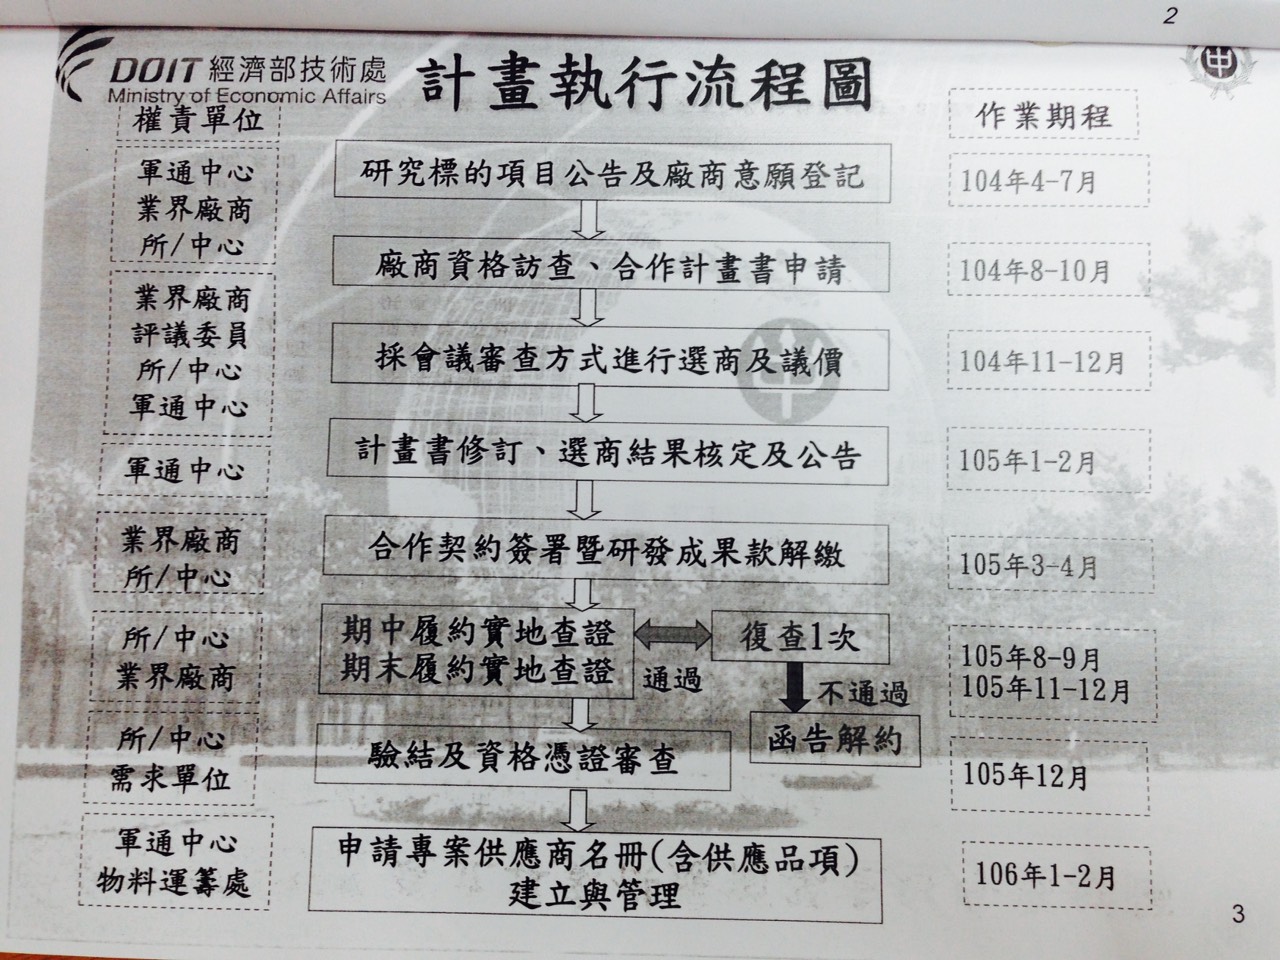 2
DOIT 經濟部技術處
Ministry of Economic Affairs
計畫執行流程圖
中
權責單位
作業期程
軍通中心
業界廠商
所/中心
研究標的項目公告及廠商意願登記
104年4-7月
廠商資格訪查、合作計畫書申請
104年8-10月
業界廠商
評議委員
所/中心
軍通中心
採會議審查方式進行選商及議價
104年11-12月
軍通中心
計畫書修訂、選商結果核定及公告
105年1-2月
業界廠商
所/中心
合作契約簽署暨研發成果款解繳
105年3-4月
所/中心
業界廠商
期中履約實地查證
期末履約實地查證
通過
復查1次
不通過
函告解約
105年8-9月
105年11-12月
所/中心
需求單位
驗結及資格憑證審查
105年12月
軍通中心
物料運籌處
申請專案供應商名冊(含供應品項)
建立與管理
106年1-2月
3